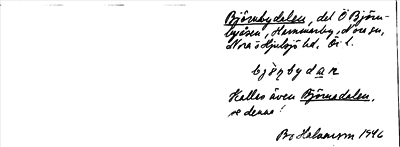 Björnbydalen, del Ö Björn-
byåsen, Hammarby, Nora sn,
Nora o Hjulsjö hd, Ör l.
bjö̀ṇbydaḷa
Kallas även Björnadalen,
se denna!
Bo Halvarson 1946